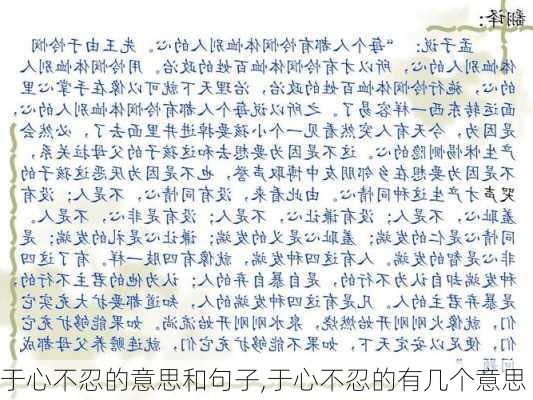 翻译:
孟子说:“每个人都有怜悯体恤别人的心。先王由于怜悯
体恤别人的心,所以才有怜悯体恤百姓的政治。用怜悯体恤别人
的心,施行怜悯体恤百姓的政治,治理天下就可以像在手掌心里
面运转东西一样容易了。之所以说每个人都有怜悯体恤别人的心,
是因为,今天有人突然看见一个小孩要掉进井里面去了,必然会
产生怵惕恻隐的心。这不是因为要想去和这孩子的父母拉关系,
不是因为要想在乡邻朋友中博取声誉,也不是因为厌恶这孩子的
哭声才产生这种同情心。由此看来,没有同情心,不是人;没有
羞耻心,不是人;没有谦让心,不是人;没有是非心,不是人。
同情心是仁的发端;羞耻心是义的发端;谦让心是礼的发端;是
非心是智的发端。人有这四种发端,就像有四肢一样。有了这四
种发端却自认为不行的,是自暴自弃的人;认为他的君主不行的,
是暴弃君主的人。凡是有这四种发端的人,知道都要扩大充实它
们,就像火刚刚开始燃烧,泉水刚刚开始流淌。如果能够扩充它
们,便足以安定天下,如果不能够扩充它们,就连赡养父母都成
问题
于心不忍的意思和句子,于心不忍的有几个意思